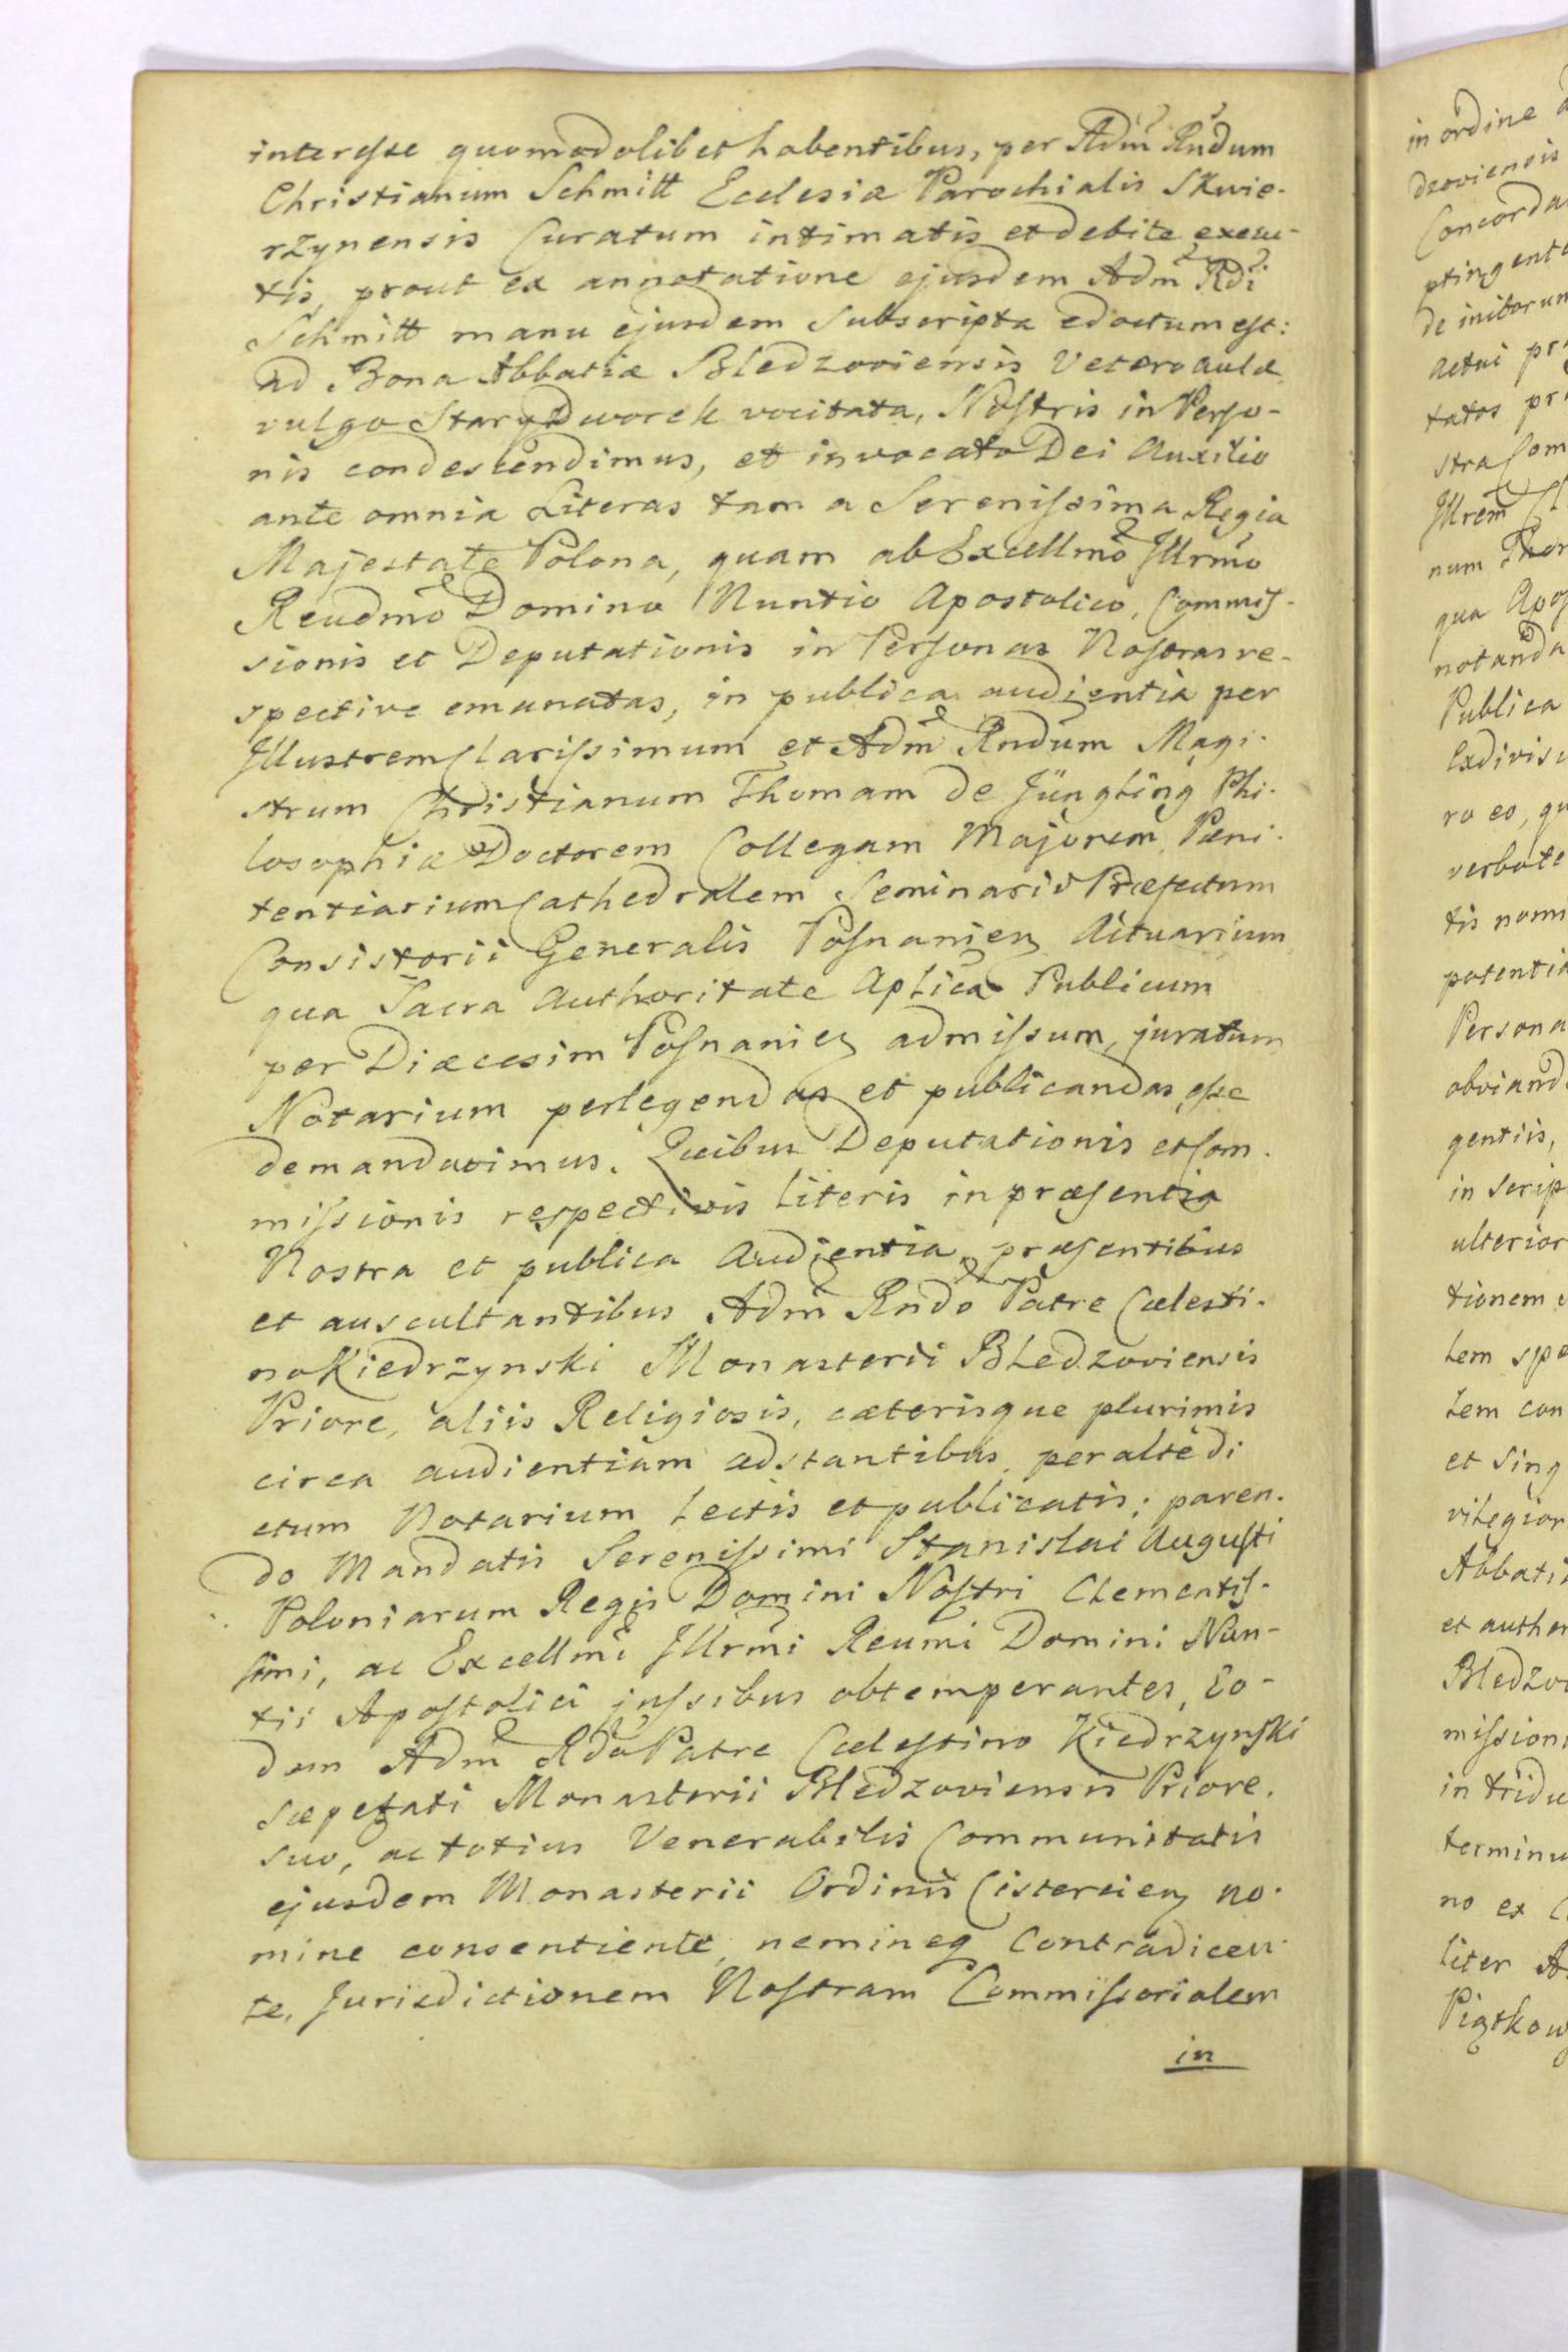 interesse quomodolibet habentibus, per Adm̃ Rñdum
Christianum Schmitt Ecclesiæ Parochialis Skwie-
rzynensis Curatum intimatis et debite execu-
tis, prout ex annotatione ejusdem Adm̃ Rd̃i
Schmitt manu ejusdem subscripta edoctum est:
ad Bona Abbatiæ Bledzoviensis Veteroaulæ
vulgo Stary Dworek vocitata, Nostris in Perso-
nis condescendimus, et invocato Dei Auxilio
ante omnia Literas tam a Serenissima Regia
Majestate Polona, quam ab Excellmo Illrmo
Reudmo Domino Nuntio Apostolico, Commis-
sionis et Deputationis in Personas Nostras re-
spective emanatas, in publica audientia per
Illustrem Clarissimum et Adm̃ Rndum Magi-
strum Christianum Thomam de Jüngling Phi-
losophiæ Doctorem Collegam Majorem, Pæni-
tentiarium Cathedralem Seminario Præfectum
Consistorii Generalis Posnanien Actuarium
qua Sacra Authoritate Aplica Publicum
per Diæcesim Posnanien admissum, juratum
Notarium perlegendas et publicandas esse
demandavimus. Quibus Deputationis et Com-
missionis respectivis Literis in præsentia
Nostra et publica Audientia, præsentibus
et auscultantibus Adm̃ Rndo Patre Cælesti-
no Kiedrzynski Monasterii Bledzoviensis
Priore, aliis Religiosis, cæterisque plurimis
circa audientiam adstantibus, per altedi
ctum Notarium Lectis et publicatis; paren-
do Mandatis Serenissimi Stanislai Augusti
Poloniarum Regis Domini Nostri Clementis-
simi, ac Excellmi Illrmi Reumi Domini Nun-
tii Apostolici jussibus obtemperantes, Eo-
dem Adm̃ Rdo Patre Cælestino Kiedrzynski
sæpefati Monasterii Bledzoviensis Priore,
suo, ac totius Venerabilis Communitatis
ejusdem Monasterii Ordinis Cistercien no-
mine consentiente, nemineq Contradicen-
te, Jurisdictionem Nostram Commissorialem
in
in ordine
dzoviensis
Concorda
ptingente
de initorum
actui
tatos
stra Com
Illrem
num Thom
qua Apos
notanda
Publica
Exdivis
ro eo, qu
verbote
tis nomi
potentia
Persona
obviand
gentiis,
in scrip
ulterior
tionem
tem spe
tem con
et sing
vilegior
Abbati
et authen
Bledzov
mission
in tridu
terminu
no ex
liter A
Piątkow